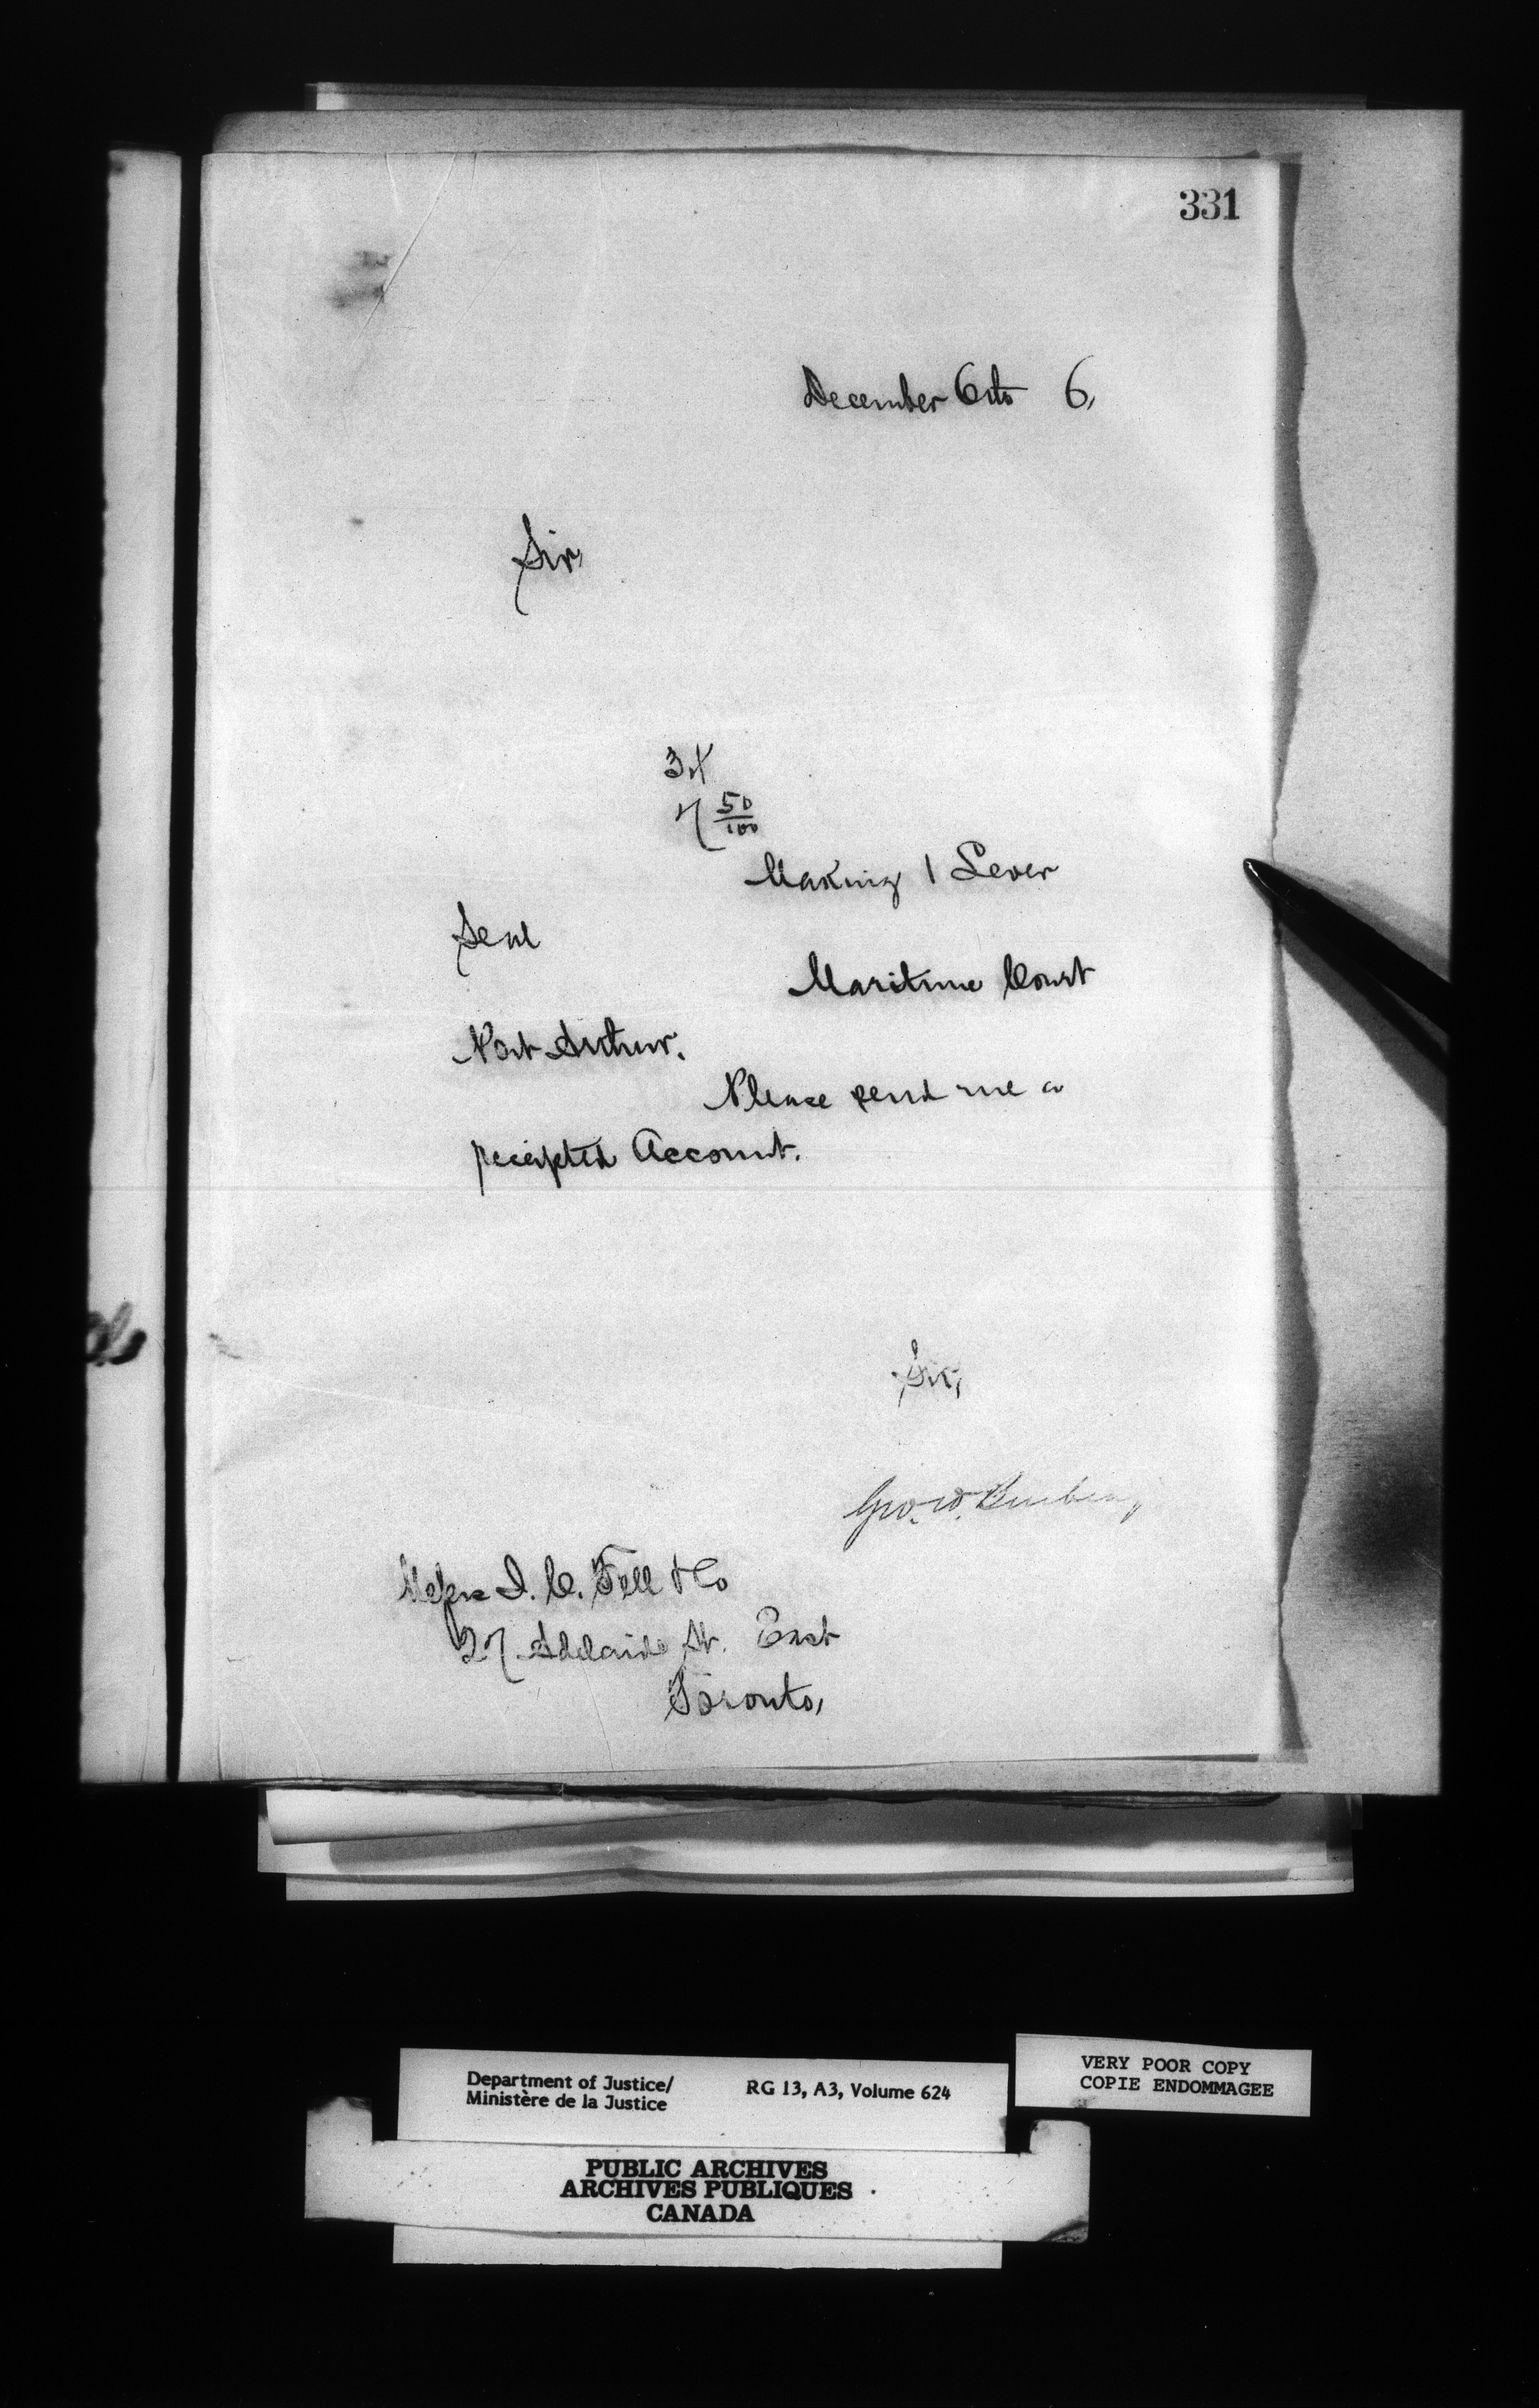 331
December 6th 6,
Sir,
34
7 50/100
Making 1 Lever
Seal
Maritime Court
Port Arthur.
Please send me a
receipted Account.
Sir,
Geo. W. Burbidge
Messrs I. C. Fell & Co
27 Adelaide St. East
Toronto,
Department of Justice/
Ministère de la Justice
RG 13, A3, Volume 624
VERY POOR COPY
COPIE ENDOMMAGEE
PUBLIC ARCHIVES
ARCHIVES PUBLIQUES
CANADA